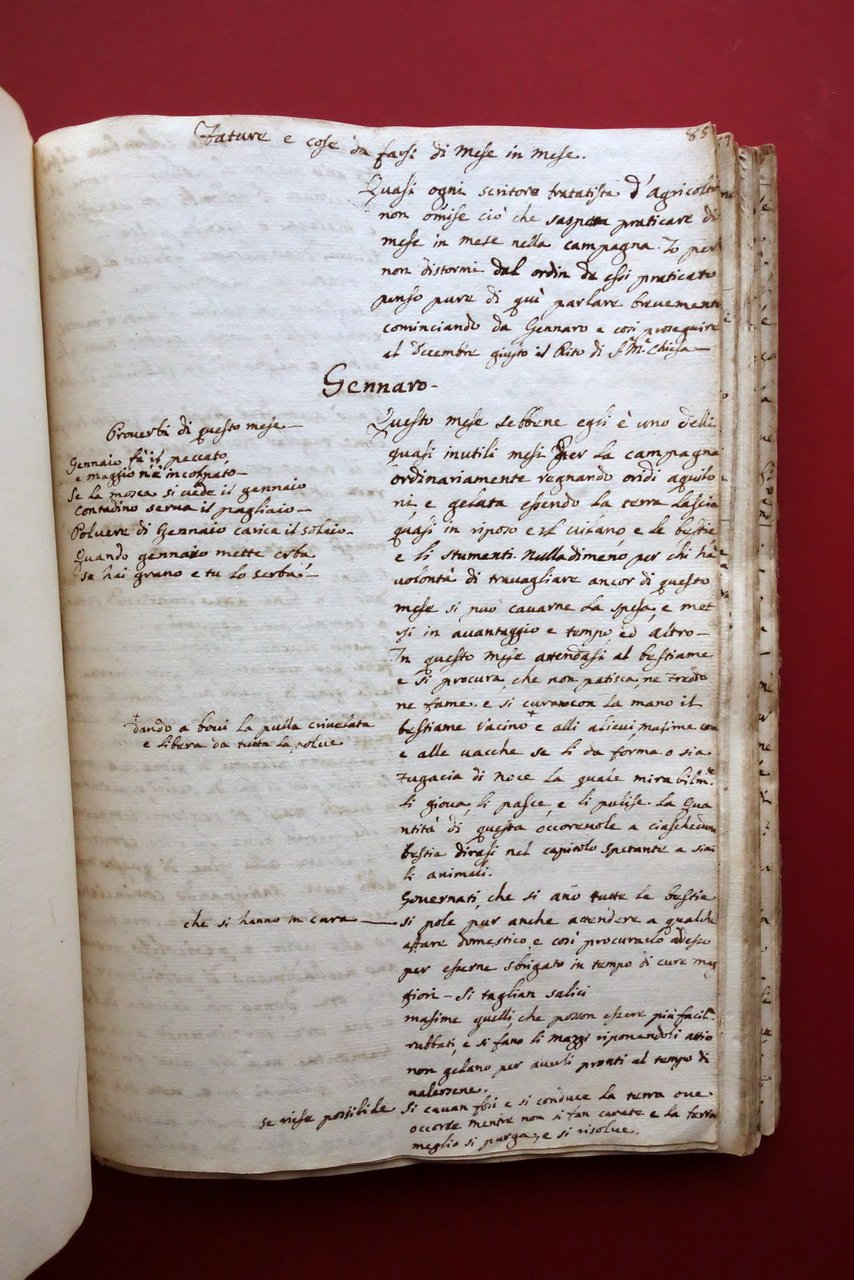 85
Fature e cose da farsi di Mese in mese.
Quasi ogni scrittore tratatista d'Agricoltu
non omise ciò che saspetta praticare di
mese in mese nella campagna. Io per
non distormi dal ordin da essi praticato
penso pure di quì parlare brevemente
cominciando da Gennaro e così proseguire
al Dicembre giusto il Rito di S.ª M.ª Chiesa —
Gennaro -
Proverbi di questo mese —
Gennaio fà il peccato,
e maggio n'è incolpato —
Se la mosca si vede il gennaio
Contadino serva il pagliaio —
Polvere di Gennaio carica il solaio —
Quando gennaio mette erba
se hai grano e tu lo serba! —
Questo mese sebbene egli è uno delli
quasi inutili mesi per la campagna
ordinariamente regnando oridi aquilo
ni, e gelata essendo la terra lascia
quasi in riposo e il vilano e le bestie
e li stumenti. Nulladimeno per chi hà
volontà di travagliare ancor di questo
mese si può cavarne la spesa, e met
si in avantaggio e tempo, ed altro —
In questo mese attendasi al bestiame
e si procura, che non patisca, ne freddo
ne fame. e si curan con la mano il
bestiame vacino + e alli alievi masime con
e alle vacche se li da forma o sia
fugacia di noce la quale mirabilm.te
li giova, li pasce, e li pulise. La qua
ntità di questa occorevole a ciascheduna
bestia dirasi nel capitolo spetante a simi
li animali.
+ dando a bovi la pulla crivelata
e libera da tutta la polve
Governati, che si ano tutte le bestie
che si hanno in cura —
si pole pur anche attendere a qualche
affare domestico, e così procurarlo adesso
per esserne sbrigato in tempo di cure mag
giori — Si taglian salici
masime quelli, che posson essere più facil.
rubbati, e si fano li mazzi riponendoli
non gelano per averli pronti al tempo di
valersene.
se riese possibile
Si cavan fosi e si conduce la terra ove
occorde mentre non si fan carate e la terra
meglio si purga, e si risolve.